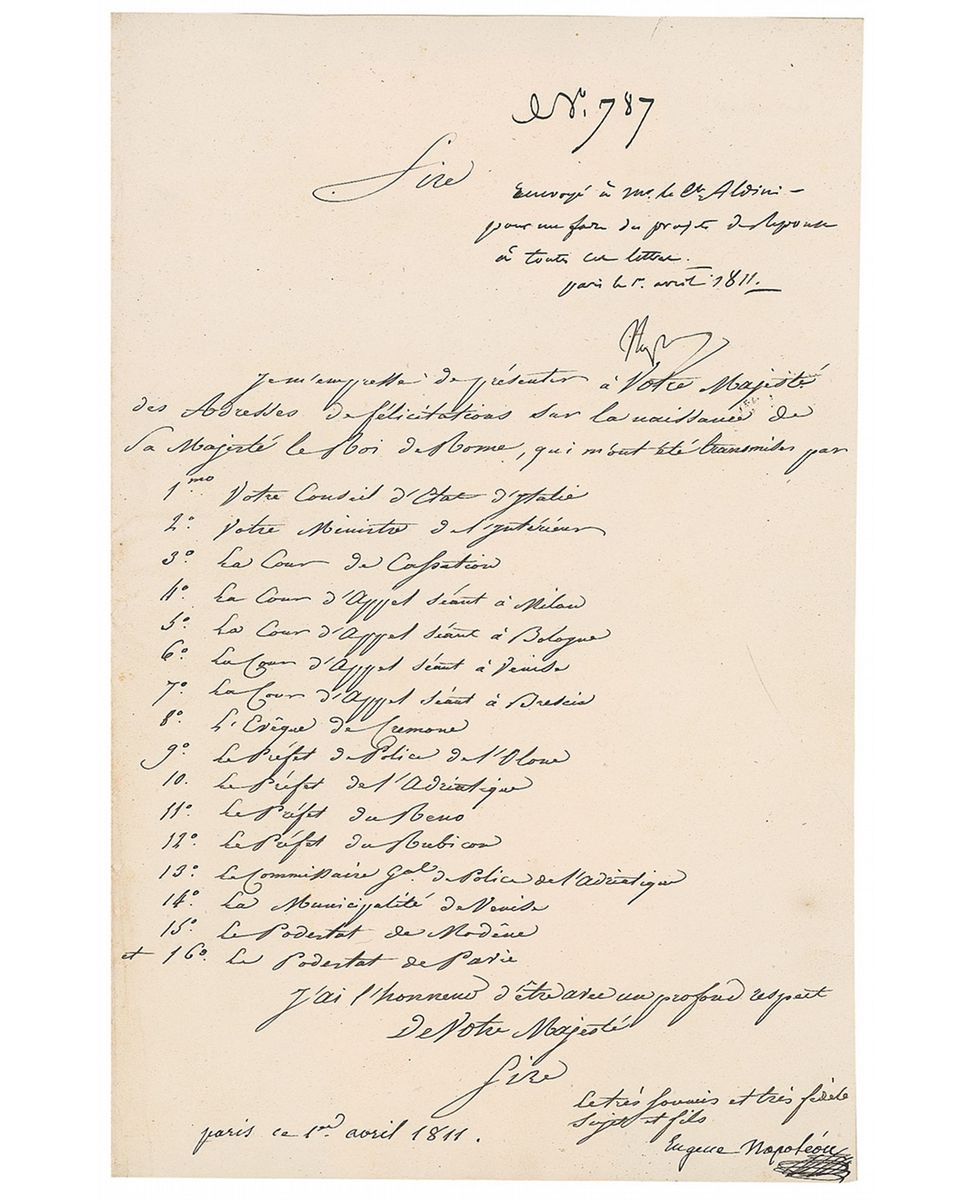 N.º 787
Sire
Envoyé à Mr. le Cte Aldini –
pour me faire des projets de Réponse
à toutes ces lettres.
paris le 5. avril 1811.
Je m'empresse de présenter à Votre Majesté
des Adresses de félicitations sur la naissance de
Sa Majesté le Roi de Rome, qui m'ont été transmises par
1.mo Votre Conseil d'Etat d'Italie
2.º Votre Ministre de l'Intérieur
3.º La Cour de Cassation
4.º La Cour d'Appel séant à Milan
5.º La Cour d'Appel séant à Bologne
6.º La Cour d'Appel séant à Venise
7.º La Cour d'Appel séant à Brescia
8.º L'Evêque de Cremone
9.º Le Préfet de Police de l'Olone
10. Le Préfet de l'Adriatique
11.º Le Préfet du Reno
12.º Le Préfet du Rubicon
13.º Le Commissaire Gal. de Police de l'Adriatique
14.º La Municipalité de Venise
15.º Le Podestat de Modêne
et 16.º Le Podestat de Pavie
J'ai l'honneur d'être avec un profond respect
De Votre Majesté
Sire
Le très soumis et très fidèle
Sujet et fils
paris ce 1er avril 1811.
Eugene Napoléon